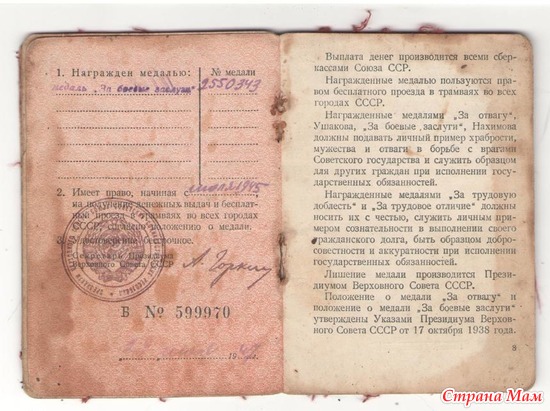 1. Награжден медалью:
№ медали
медаль „За боевые заслуги“
2550343
2. Имеет право, начиная с
июля 1945
на получение денежных выдач и бесплат-
ный проезд в трамваях во всех городах
СССР, согласно положению о медали.
3. Удостоверение бессрочное.
Секретарь Президиума
Верховного Совета СССР
А. Горкин
В № 599970
194
Выплата денег производится всеми сбер-
кассами Союза ССР.
Награжденные медалью пользуются пра-
вом бесплатного проезда в трамваях во всех
городах СССР.
Награжденные медалями „За отвагу“,
Ушакова, „За боевые заслуги“, Нахимова
должны подавать личный пример храбрости,
мужества и отваги в борьбе с врагами
Советского государства и служить образцом
для других граждан при исполнении госу-
дарственных обязанностей.
Награжденные медалями „За трудовую
доблесть“ и „За трудовое отличие“ должны
носить их с честью, служить личным при-
мером сознательности в выполнении своего
гражданского долга, быть образцом добро-
совестности и аккуратности при исполнении
государственных обязанностей.
Лишение медали производится Прези-
диумом Верховного Совета СССР.
Положение о медали „За отвагу“ и
положение о медали „За боевые заслуги“
утверждены Указами Президиума Верхов-
ного Совета СССР от 17 октября 1938 года.
8
Страна Мам